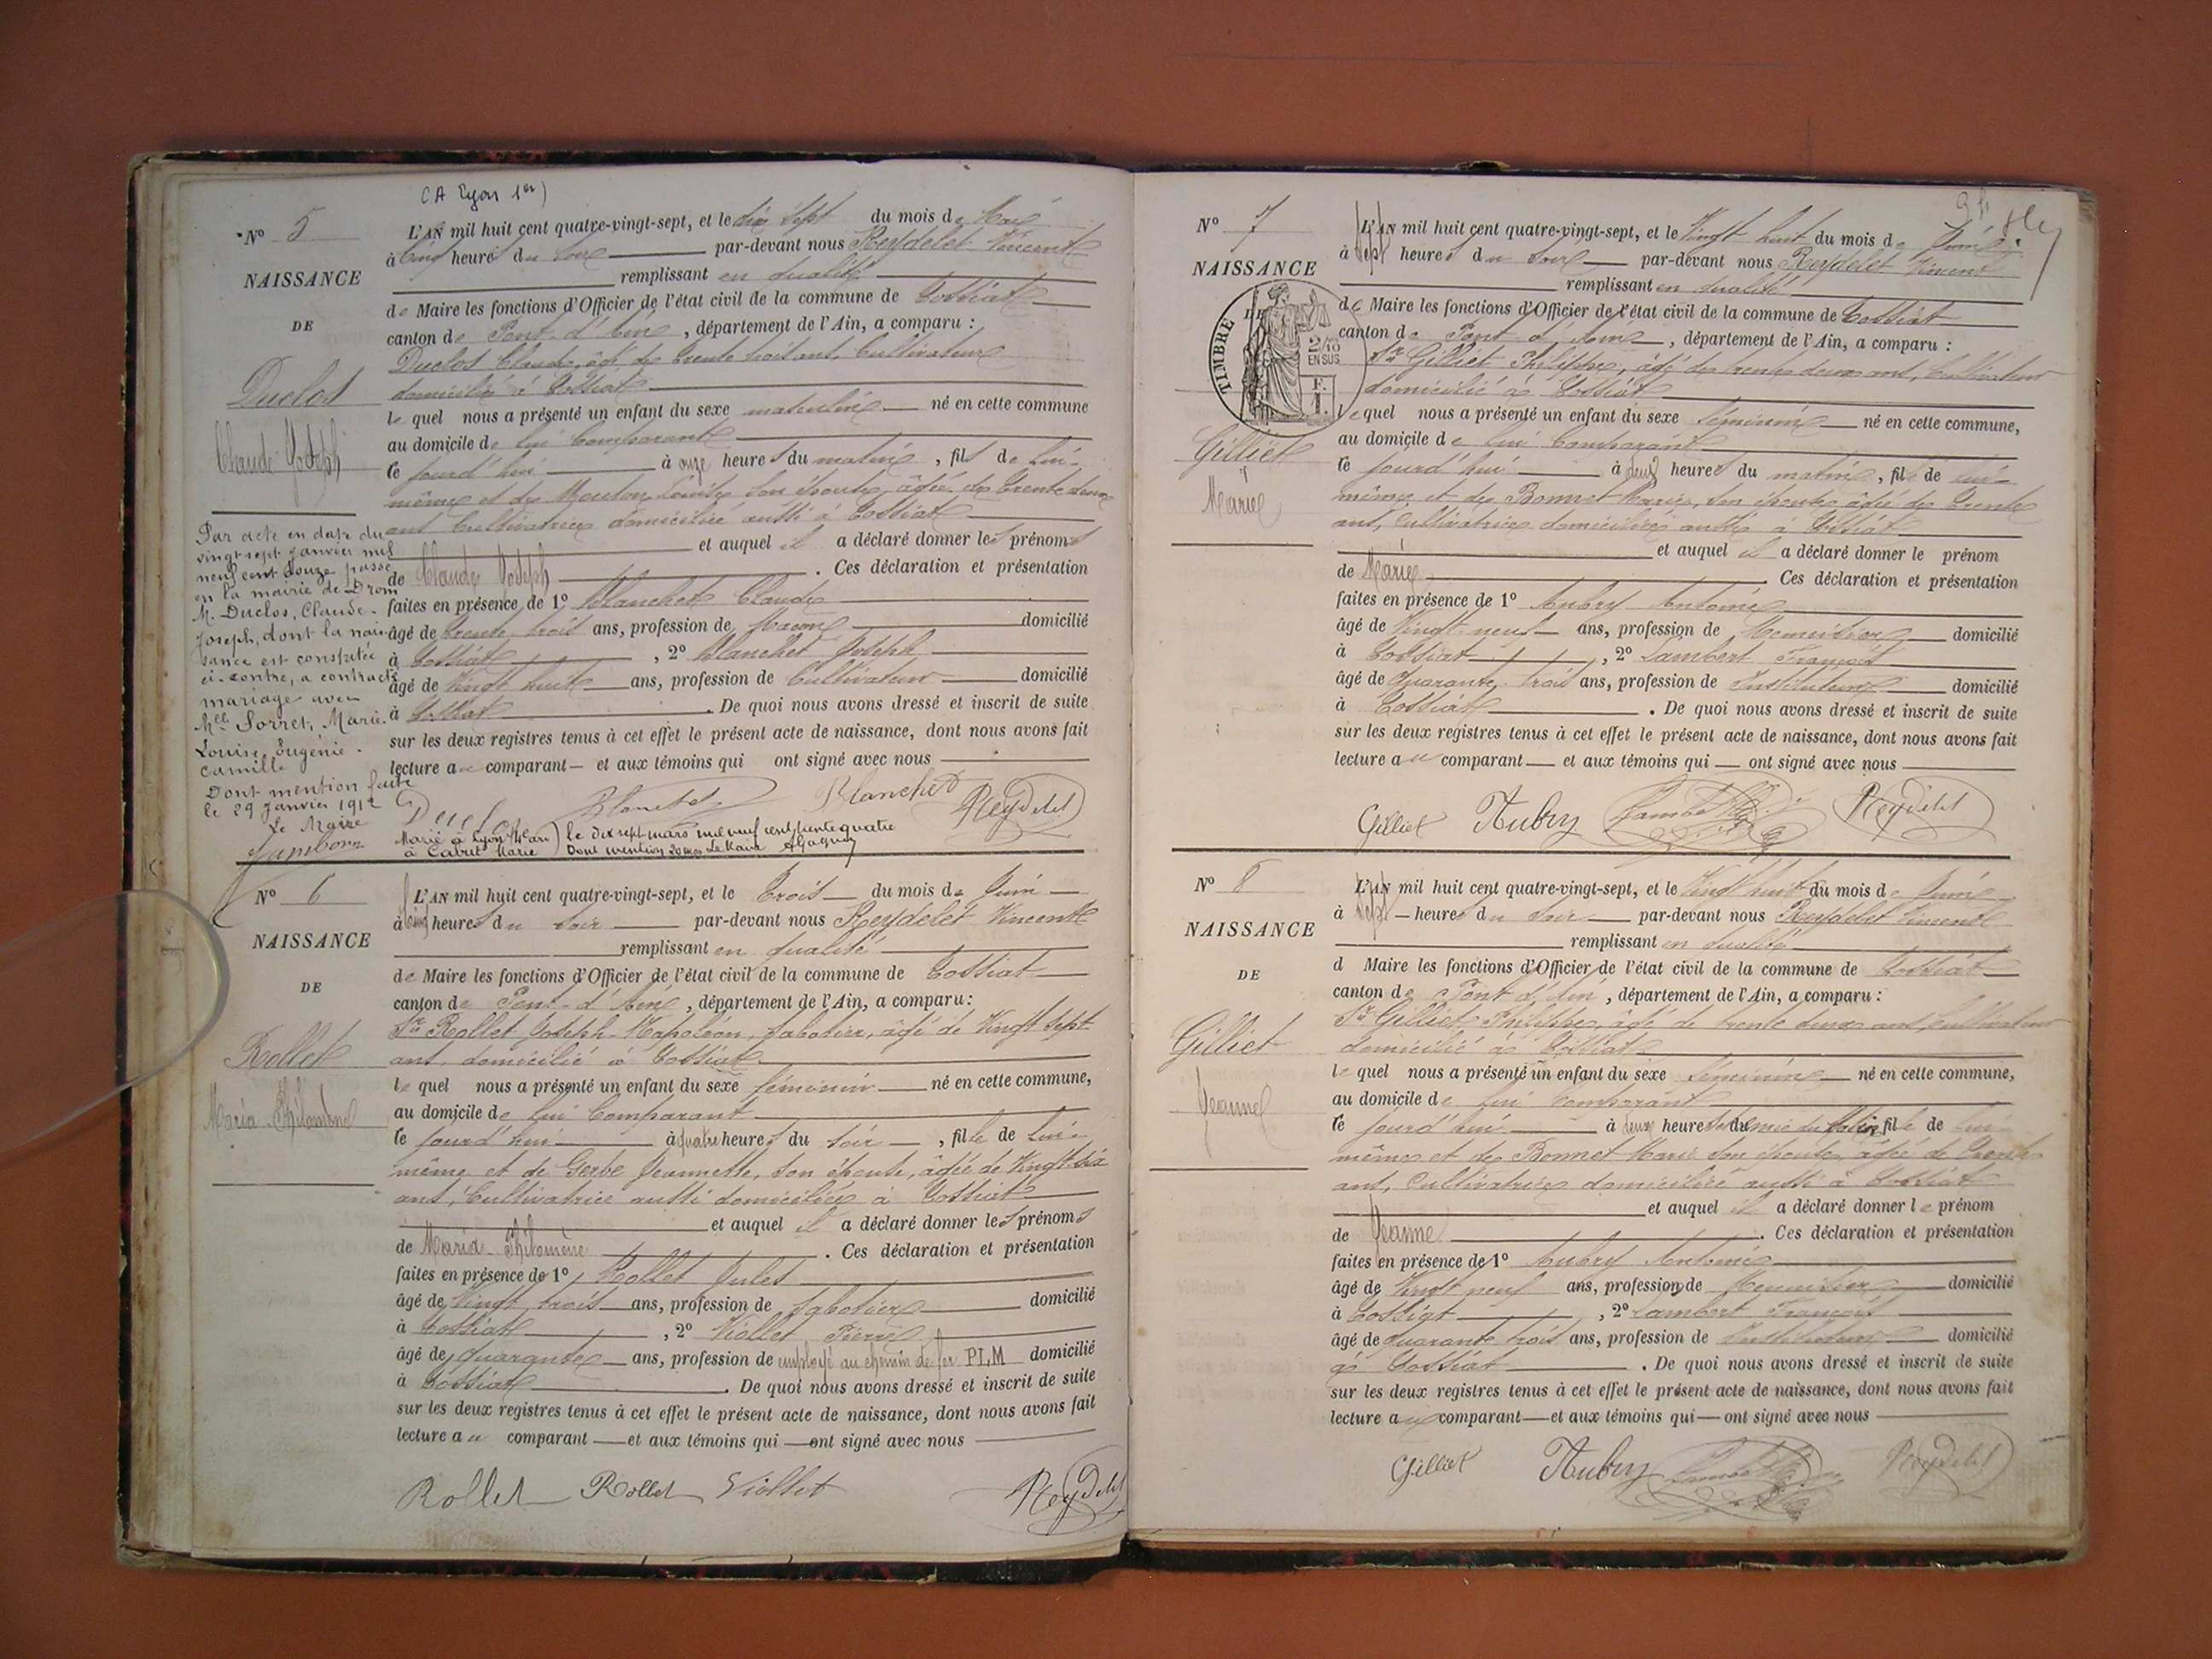 (A Lyon 1er)
N° 5
NAISSANCE
DE
Duclos
Claude Joseph
L'AN mil huit cent quatre-vingt-sept, et le dix sept du mois de Mai
à cinq heures du soir par-devant nous Reydelet Vincent
remplissant en qualité
de Maire les fonctions d'Officier de l'état civil de la commune de Tossiat
canton de Pont-d'Ain, département de l'Ain, a comparu :
Duclos Claude, âgé de trente trois ans, Cultivateur
domicilié à Tossiat
lequel nous a présenté un enfant du sexe masculin né en cette commune
au domicile de lui Comparant
ce jourd'hui à onze heures du matin, fils de lui-
même et de son épouse, âgée de trente deux
ans Cultivatrice domiciliée aussi à Tossiat
et auquel il a déclaré donner les prénoms
de Claude Joseph. Ces déclaration et présentation
faites en présence de 1° Blanchet Claude
âgé de trente trois ans, profession de Maçon domicilié
à Tossiat, 2° Blanchet Joseph
âgé de Vingt huit ans, profession de Cultivateur domicilié
à Tossiat. De quoi nous avons dressé et inscrit de suite
sur les deux registres tenus à cet effet le présent acte de naissance, dont nous avons fait
lecture au comparant et aux témoins qui ont signé avec nous
Duclos Blanchet Blanchet Reydelet
Par acte en date du
vingt-sept janvier mil
neuf cent douze passé
en la mairie de Drom
M. Duclos, Claude-
Joseph, dont la nais-
sance est constatée
ci-contre, a contracté
mariage avec
Melle Sorret, Marie-
Louise, Eugénie-
Camille
Dont mention faite
le 29 Janvier 1912
Le Maire
Marié à Lyon (4e arr) le dix sept mars mil neuf cent trente quatre
à Cabut Marie Dont mention 20 mars Le Maire
N° 6
NAISSANCE
DE
Rollet
Maria-Philomène
L'AN mil huit cent quatre-vingt-sept, et le trois du mois de Juin
à cinq heures du soir par-devant nous Reydelet Vincent
remplissant en qualité
de Maire les fonctions d'Officier de l'état civil de la commune de Tossiat
canton de Pont-d'Ain, département de l'Ain, a comparu :
Sr Rollet Joseph-Napoléon, Sabotier, âgé de Vingt sept
ans, domicilié à Tossiat
lequel nous a présenté un enfant du sexe féminin né en cette commune,
au domicile de lui Comparant
ce jourd'hui à quatre heures du soir, fille de lui-
même et de Gerbe Jeannette, son épouse, âgée de Vingt-six
ans, Cultivatrice aussi domiciliée à Tossiat
et auquel il a déclaré donner les prénoms
de Maria-Philomène. Ces déclaration et présentation
faites en présence de 1° Rollet Jules
âgé de Vingt trois ans, profession de Sabotier domicilié
à Tossiat, 2° Viollet Pierre
âgé de quarante ans, profession de employé au chemin de fer PLM domicilié
à Tossiat. De quoi nous avons dressé et inscrit de suite
sur les deux registres tenus à cet effet le présent acte de naissance, dont nous avons fait
lecture au comparant et aux témoins qui ont signé avec nous
Rollet Rollet Viollet Reydelet
N° 7
NAISSANCE
DE
TIMBRE
2/10
EN SUS
Gilliet
Marie
L'AN mil huit cent quatre-vingt-sept, et le Vingt huit du mois de Juin
à Sept heures du soir par-devant nous Reydelet Vincent
remplissant en qualité
de Maire les fonctions d'Officier de l'état civil de la commune de Tossiat
canton de Pont d'Ain, département de l'Ain, a comparu :
Sr Gilliet Philippe, âgé de trente deux ans, Cultivateur
domicilié à Tossiat
lequel nous a présenté un enfant du sexe féminin né en cette commune,
au domicile de lui Comparant
ce jourd'hui à deux heures du matin, fille de lui-
même et de Bonnet Marie, son épouse âgée de trente
ans, Cultivatrice domiciliée aussi à Tossiat
et auquel il a déclaré donner le prénom
de Marie. Ces déclaration et présentation
faites en présence de 1° Aubry Antoine
âgé de Vingt-neuf ans, profession de Menuisier domicilié
à Tossiat, 2° Lambert François
âgé de quarante trois ans, profession de Instituteur domicilié
à Tossiat. De quoi nous avons dressé et inscrit de suite
sur les deux registres tenus à cet effet le présent acte de naissance, dont nous avons fait
lecture au comparant et aux témoins qui ont signé avec nous
Gilliet Aubry Lambert Reydelet
N° 8
NAISSANCE
DE
Gilliet
Jeanne
L'AN mil huit cent quatre-vingt-sept, et le Vingt huit du mois de Juin
à Sept heures du soir par-devant nous Reydelet Vincent
remplissant en qualité
d Maire les fonctions d'Officier de l'état civil de la commune de Tossiat
canton de Pont d'Ain, département de l'Ain, a comparu :
Sr Gilliet Philippe, âgé de trente deux ans, Cultivateur
domicilié à Tossiat
lequel nous a présenté un enfant du sexe féminin né en cette commune,
au domicile de lui comparant
ce jourd'hui à deux heures et demie du matin fille de lui-
même et de Bonnet Marie son épouse, âgée de trente
ans, Cultivatrice domiciliée aussi à Tossiat
et auquel il a déclaré donner le prénom
de Jeanne. Ces déclaration et présentation
faites en présence de 1° Aubry Antoine
âgé de Vingt neuf ans, profession de Menuisier domicilié
à Tossiat, 2° Lambert François
âgé de quarante trois ans, profession de Instituteur domicilié
à Tossiat. De quoi nous avons dressé et inscrit de suite
sur les deux registres tenus à cet effet le présent acte de naissance, dont nous avons fait
lecture au comparant et aux témoins qui ont signé avec nous
Gilliet Aubry Lambert Reydelet